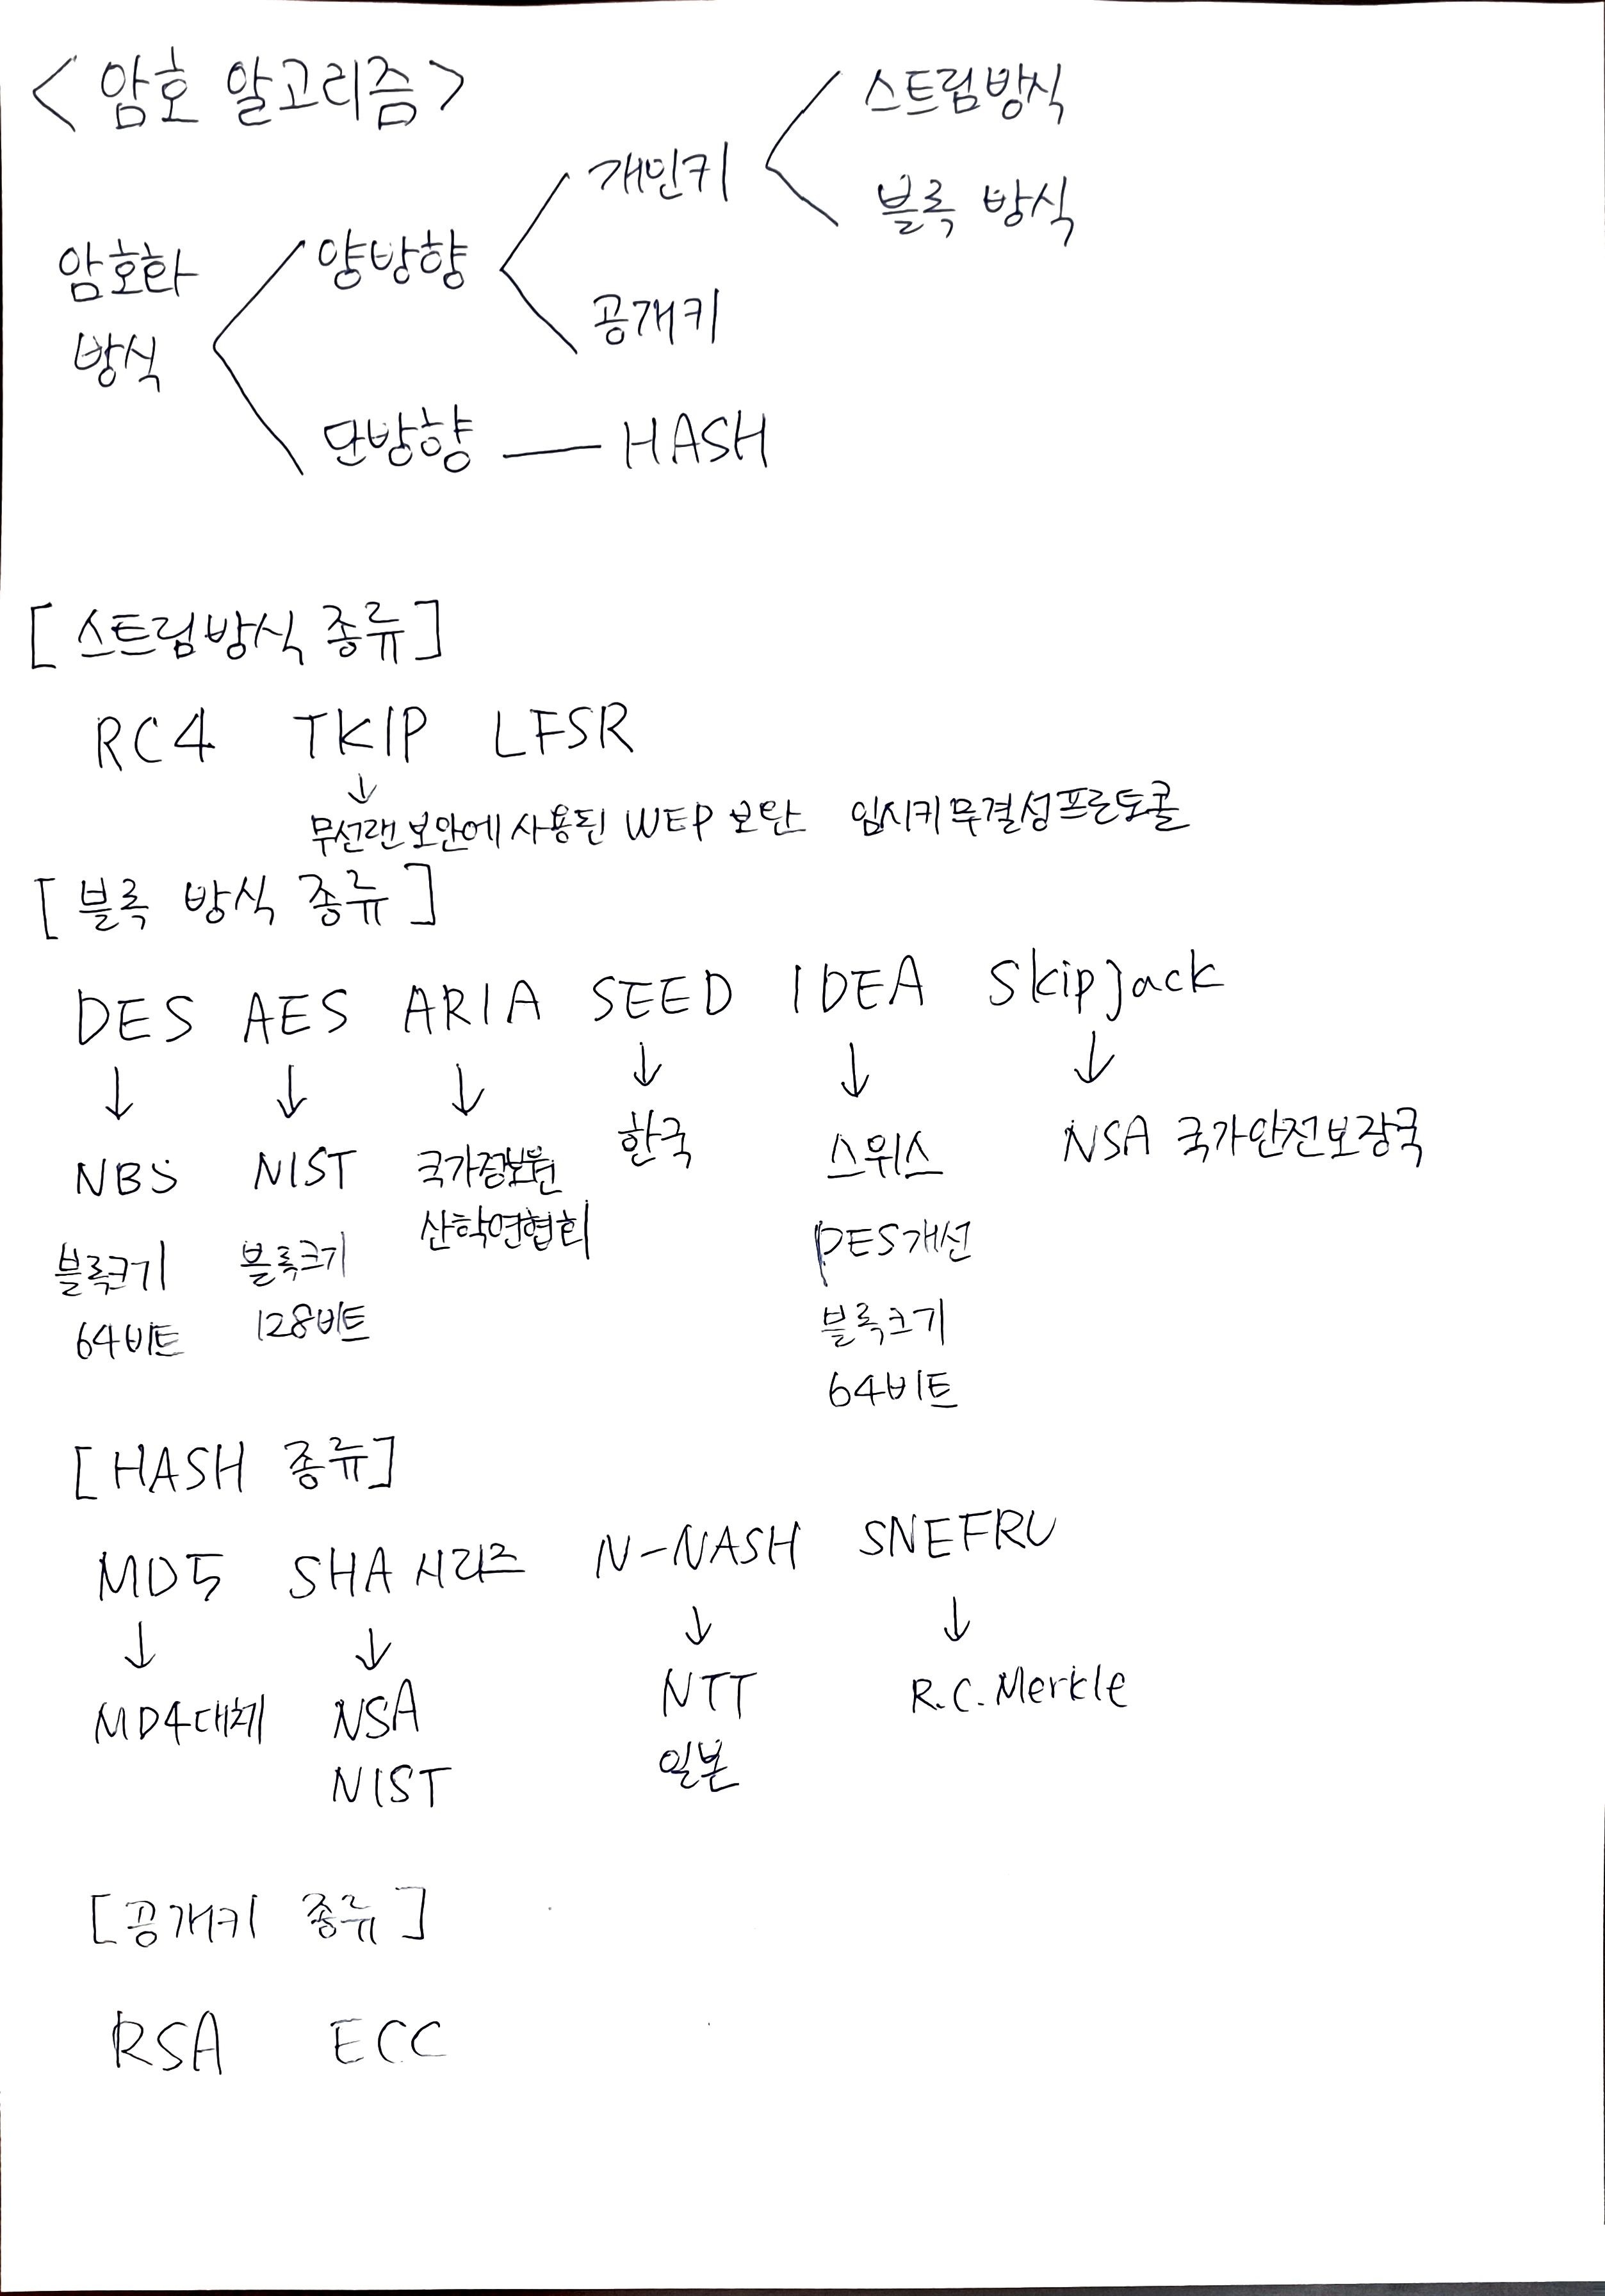 <암호 알고리즘>
스트림방식
개인키
블록 방식
양방향
암호화
방식
공개키
단방향 — HASH
[스트림방식 종류]
RC4 TKIP LFSR
↓
무선랜 보안에 사용된 WEP 보완 임시키 무결성 프로토콜
[블록 방식 종류]
DES AES ARIA SEED IDEA Skipjack
↓ ↓ ↓ ↓ ↓ ↓
NBS NIST 국가정보원 한국 스위스 NSA 국가안전보장국
블록크기 블록크기 산학연협회 DES개선
64비트 128비트 블록크기
64비트
[HASH 종류]
MD5 SHA시리즈 N-NASH SNEFRU
↓ ↓ ↓ ↓
MD4대체 NSA NTT R.C.Merkle
NIST 일본
[공개키 종류]
RSA ECC